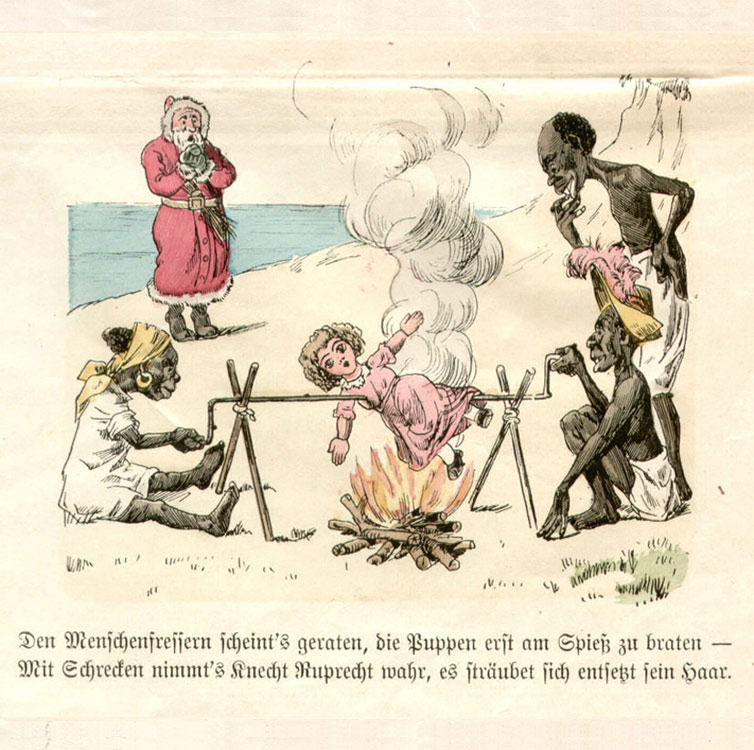 Den Menschenfressern scheint's geraten, die Puppen erst am Spieß zu braten —
Mit Schrecken nimmt's Knecht Ruprecht wahr, es sträubet sich entsetzt sein Haar.